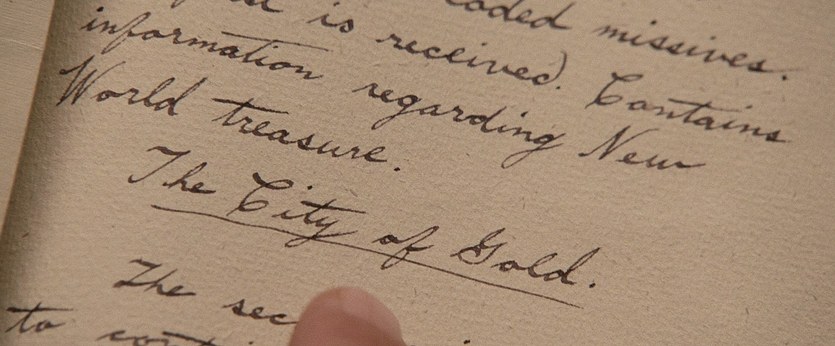 coded missives.
is received. Contains
information regarding New
World treasure.
The City of Gold.
The
to